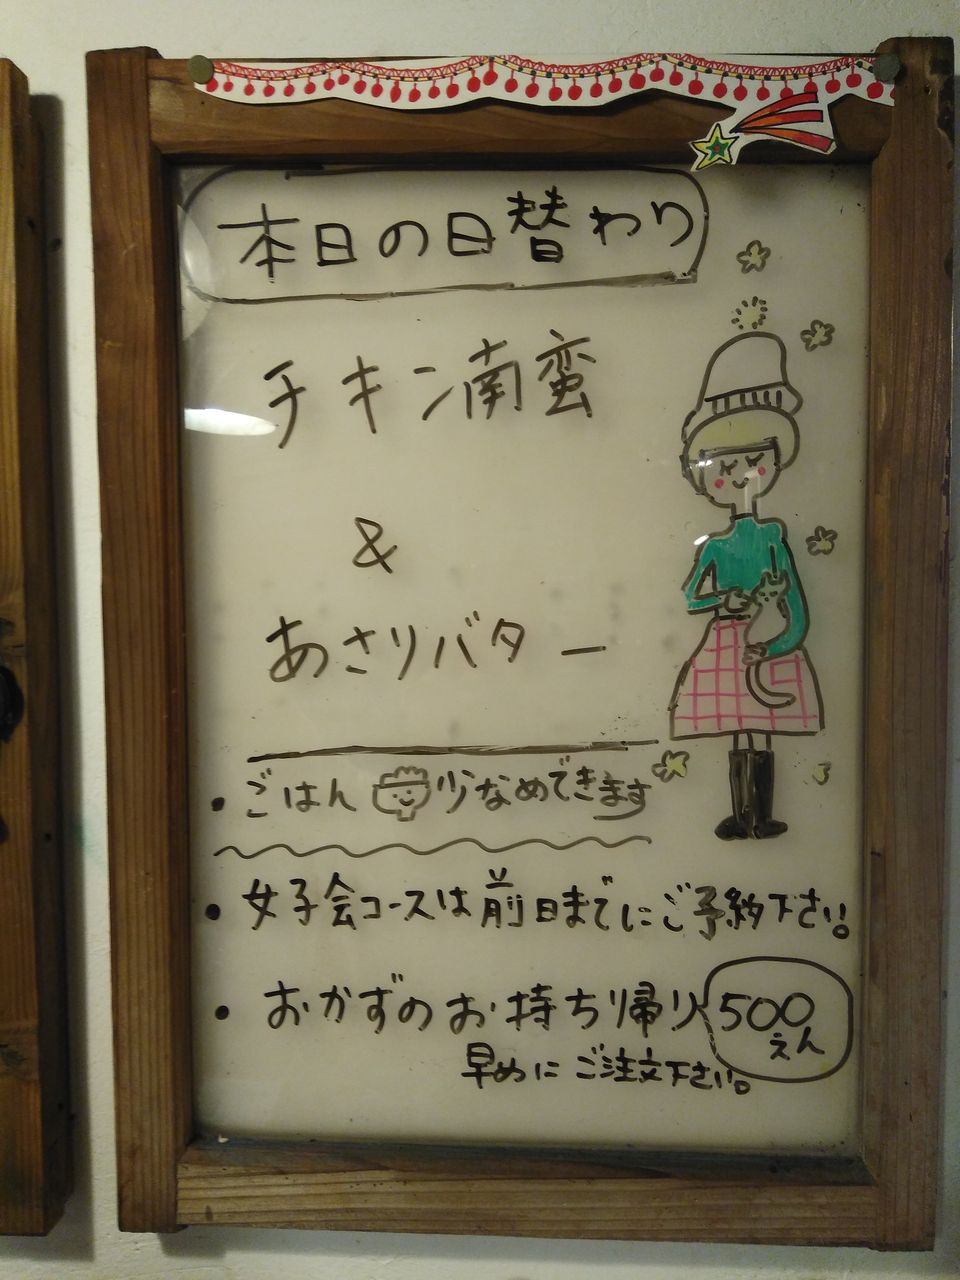 本日の日替わり
チキン南蛮
&
あさりバター
・ごはん少なめできます
・女子会コースは前日までにご予約下さい。
・おかずのお持ち帰り500えん
早めにご注文下さい。